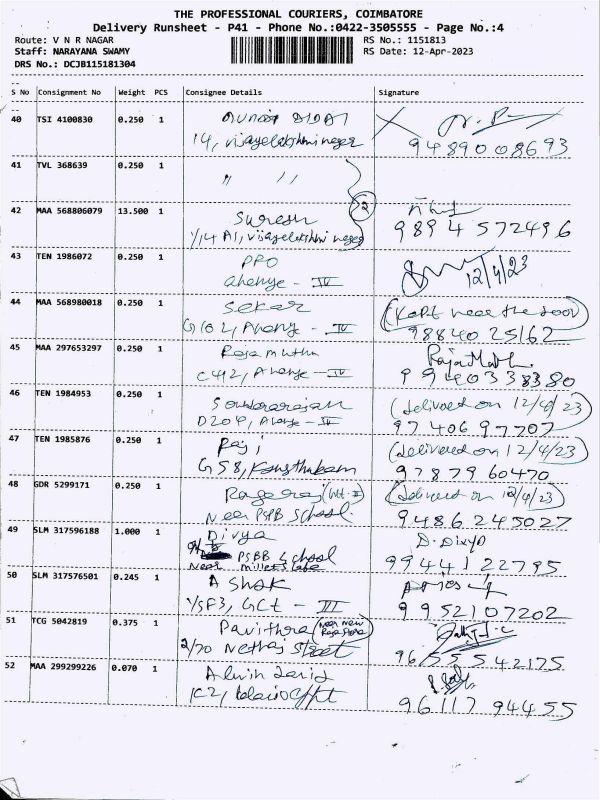 THE PROFESSIONAL COURIERS, COIMBATORE
Delivery Runsheet - P41 - Phone No.:0422-3505555 - Page No.:4
Route: V N R NAGAR
RS No.: 1151813
Staff: NARAYANA SWAMY
RS Date: 12-Apr-2023
DRS No.: DCJB115181304
S No Consignment No Weight PCS Consignee Details Signature
40 TSI 4100830 0.250 1
14, vijayelakshmi nagar 9489008693
41 TVL 368639 0.250 1 " "
2
42 MAA 568806079 13.500 1 Suresh
1/14 A1, vijayelakshmi nager 9894572496
43 TEN 1986072 0.250 1
- IV 12/4/23
44 MAA 568980018 0.250 1 Sekar (Kept near the door)
G102, - IV 9884025162
45 MAA 297653297 0.250 1 Raja muthu
C412, - IV 9940338380
46 TEN 1984953 0.250 1 Soundararajan (delivered on 12/4/23)
D209, - IV 9740697707
47 TEN 1985876 0.250 1 Raji (delivered on 12/4/23)
G58, 9787960470
48 GDR 5299171 0.250 1 (delivered on 12/4/23)
Near PSBB School. 9486245027
49 SLM 317596188 1.000 1 Divya D. Divya
PSBB School
Near 9944122795
50 SLM 317576501 0.245 1 Ashok
1/SF3, GCt - III 9952107202
51 TCG 5042819 0.375 1 Pavithra (Near new
2/70 Nethaji Street 9655542175
52 MAA 299299226 0.070 1
9611794455